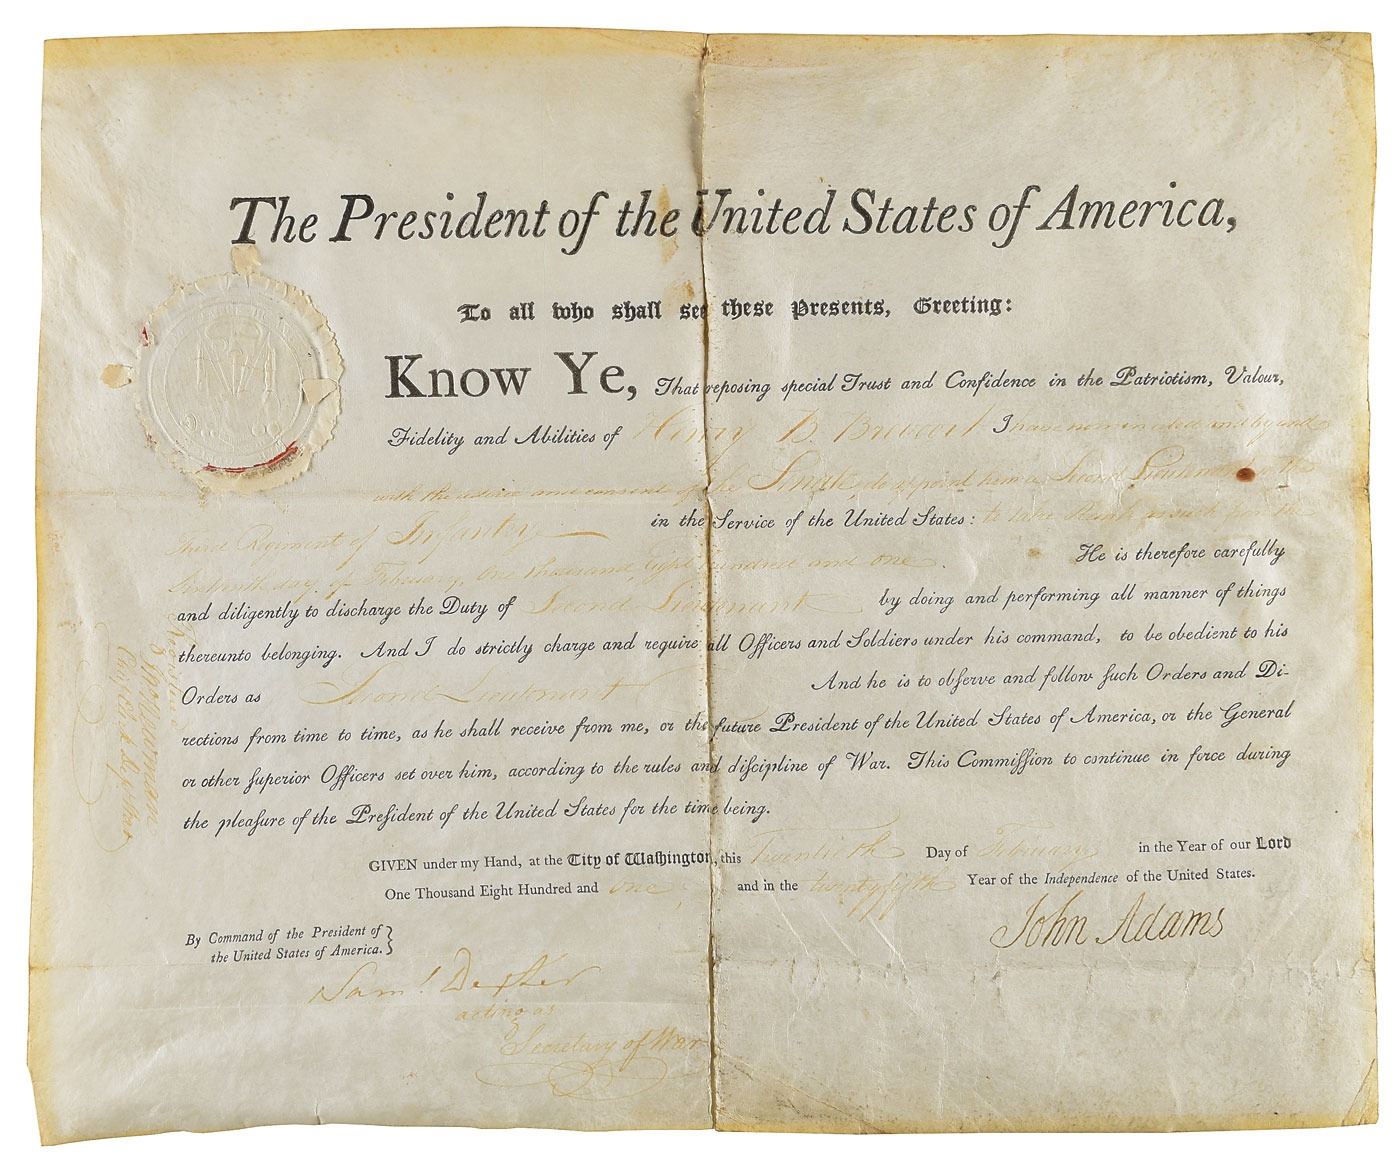 The President of the United States of America,
To all who shall see these Presents, Greeting:
Know Ye, That reposing special Trust and Confidence in the Patriotism, Valour,
Fidelity and Abilities of Henry B. Brevoort I have nominated and by and
with the advice and consent of the Senate, do appoint him a Second Lieutenant in the
third Regiment of Infantry in the Service of the United States: to take Rank as such from the
Sixteenth day of February, one thousand Eight hundred and one. He is therefore carefully
and diligently to discharge the Duty of Second Lieutenant by doing and performing all manner of things
thereunto belonging. And I do strictly charge and require all Officers and Soldiers under his command, to be obedient to his
Orders as Second Lieutenant And he is to obſerve and follow ſuch Orders and Di-
rections from time to time, as he shall receive from me, or the future Preſident of the United States of America, or the General
or other ſuperior Officers set over him, according to the rules and diſcipline of War. This Commiſſion to continue in force during
the pleaſure of the Preſident of the United States for the time being.
GIVEN under my Hand, at the City of Waſhington, this Twentieth Day of February in the Year of our Lord
One Thousand Eight Hundred and one, and in the twenty fifth Year of the Independence of the United States.
John Adams
By Command of the President of
the United States of America.
Sam! Dexter
acting as
Secretary of War
Registered
Newman